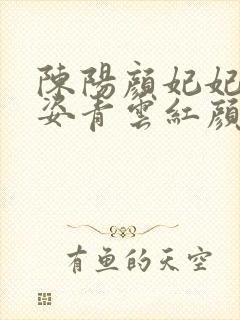 陳陽顔妃妃
姿青雲紅顔
有魚的天空